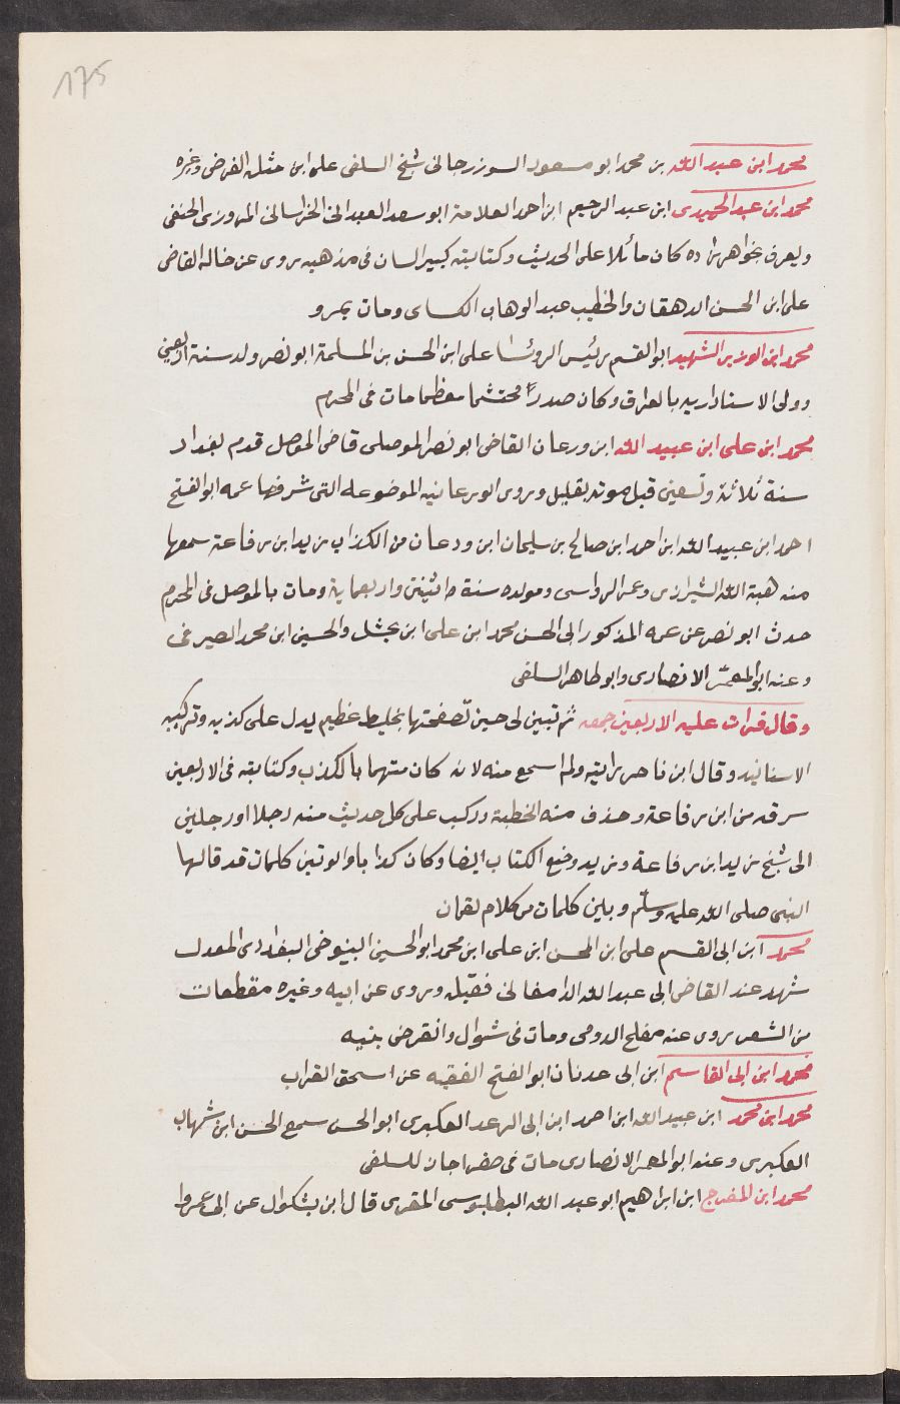 175
محمد ابن عبد الله بن محمد ابو مسعود السوزرجانى شيخ السلفى على ابن مثله الفرضى وغيره
محمد ابن عبد الحميدى ابن عبد الرحيم ابن احمد العلامة ابو سعد العبدانى الخراسانى المروزى الحنفى
ويعرف بخواهرزاده كان مائلا على الحديث وكتابته كبير السان فى مذهبه يروى عن خاله القاضى
على ابن الحسن الدهقان والخطيب عبد الوهاب الكساى ومات بمرو
محمد ابن الوزير الشهيد ابو القسم رئيس الروئسا على ابن الحسن بن المسلمة ابو نصر ولد سنة اربعين
وولى الاستاداريه بالعراق وكان صدرًا محتشما معظما مات فى المحرم
محمد ابن على ابن عبيد الله ابن ورعان القاضى ابو نصر الموصلى قاضى الموصل قدم بغداد
سنة ثلاثة وتسعين قبل موته بقليل ويروى الورعانيه الموضوعه التى شرفها عمه ابو الفتح
احمد ابن عبيد الله ابن احمد ابن صالح بن سليمان ابن ودعان من الكذاب زيد ابن رفاعة سمعها
منه هبة الله الشيرازى وعمر الرواسى ومولده سنة اثنتين واربعماية ومات بالموصل فى المحرم
حدث ابو نصر عن عمه المذكور الى الحسن محمد ابن على ابن بحشل والحسين ابن محمد الصيرفى
وعنه ابو المعمّر الانصارى وابو طاهر السلفى
وقال قرات عليه الاربعين جمعه ثم تبين لى حين تصفحتها تخليط عظيم يدل على كذبه وتركيبه
الاسانيد وقال ابن ناصر رايته ولم اسمع منه لانه كان متهما بالكذب وكتابته فى الاربعين
سرقه من ابن رفاعة وحذف منه الخطبة وركب على كل حديث منه رجلا او رجلين
الى شيخ زيد ابن رفاعة وزيد وضع الكتاب ايضا وكان كذابا والوتين كلمات قد قالها
النبى صلى الله عليه وسلم وبلين كلمات من كلام لقمان
محمد ابن ابى القسم على ابن المحسن ابن على ابن محمد ابو الحسين التنوخى البغدادى المعدل
شهد عند القاضى ابى عبد الله الدامغانى فقبله ويروى عن ابيه وغيره مقطعات
من الشعر يروى عنه مفلح الدومى ومات فى شوال وانقرض بنيه
محمد ابن ابى القاسم ابن ابى عدنان ابو الفتح الفقيه عن اسحق القراب
محمد ابن محمد ابن عبيد الله ابن احمد ابن ابى الرعد العكبرى ابو الحسن سمع الحسن ابن شهاب
العكبرى وعنه ابو المعمر الانصارى مات فى صفر اجاز للسلفى
محمد ابن المفرج ابن ابراهيم ابو عبد الله البطليوسى المقرى قال ابن بشكوال عن ابى عمروا